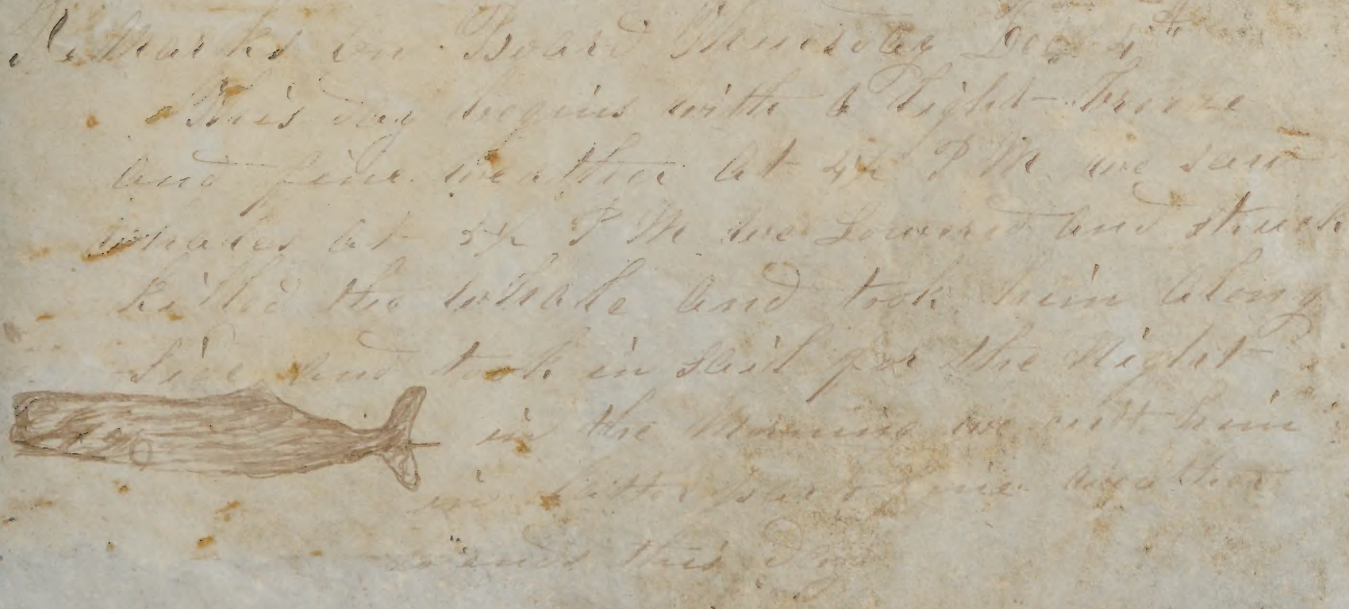 Remarks on Board Thursday Dec
This day begins with a light breeze
and fine weather at 4½ P M we saw
whales at 5½ P M we Lowered and struck
killed the whale and took him along
side and took in sail for the Night
in the Morning we cutt him
in latter part fine weather
ends this Day